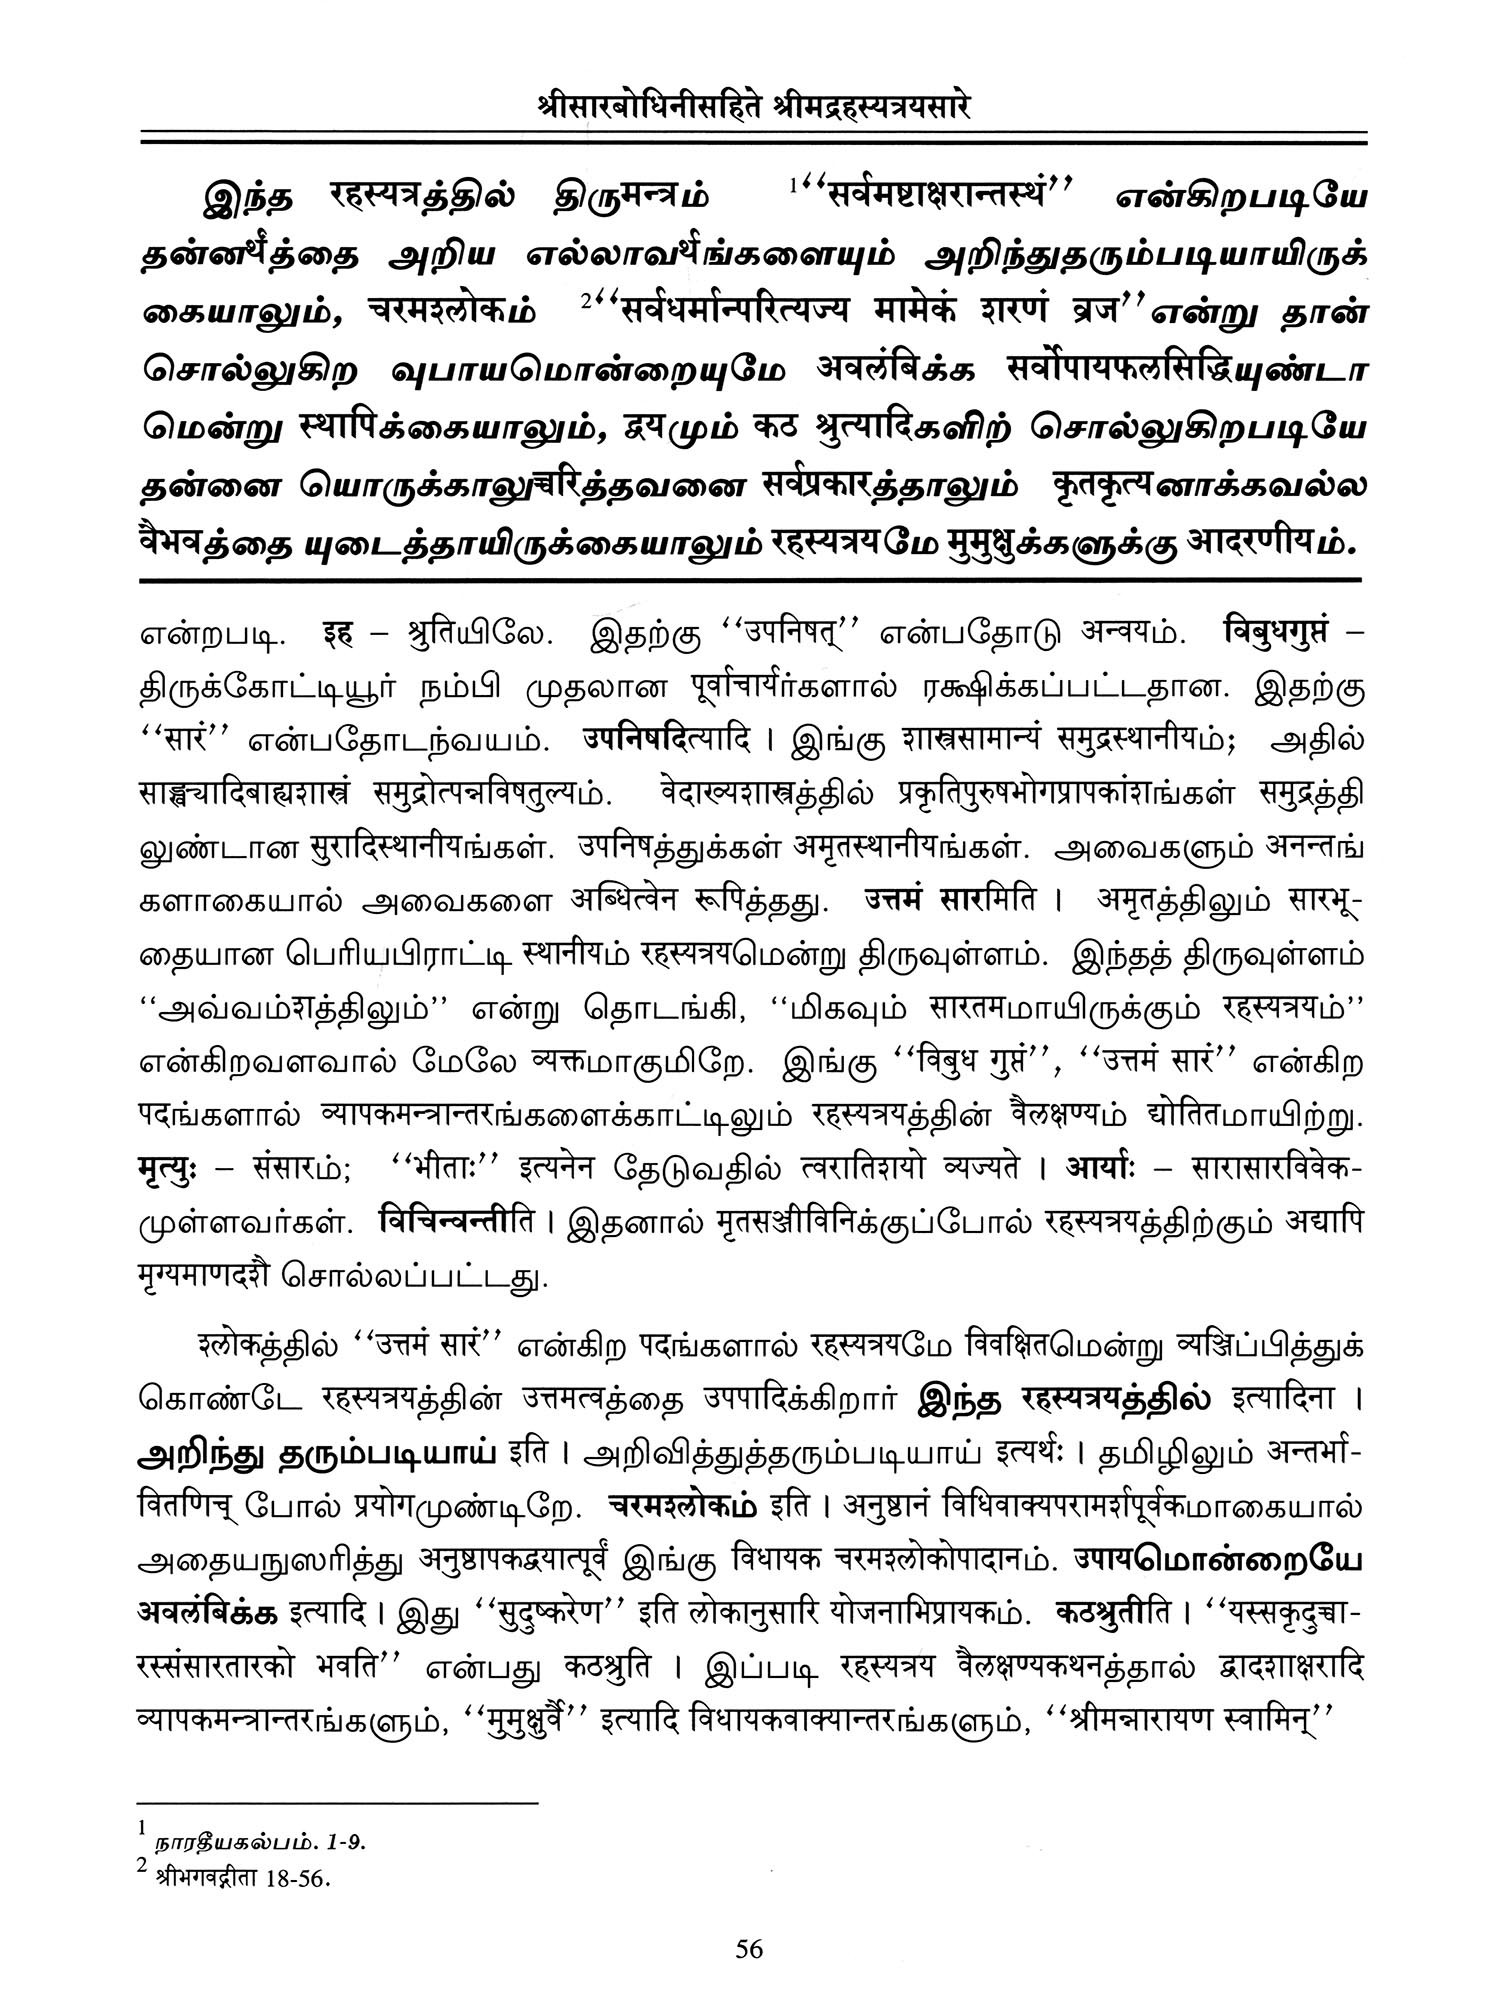 श्रीसारबोधिनीसहिते श्रीमद्रहस्यत्रयसारे
இந்த रहस्यत्रத்தில் திருमन्त्रம் 1‘‘सर्वमष्टाक्षरान्तस्थं’’ என்கிறபடியே
தன்னर्थத்தை அறிய எல்லாவर्थங்களையும் அறிந்துதரும்படியாயிருக்
கையாலும், चरमश्लोकம் 2‘‘सर्वधर्मान्परित्यज्य मामेकं शरणं व्रज’’என்று தான்
சொல்லுகிற வுபாயமொன்றையுமே अवलंबिக்க सर्वोपायफलसिद्धिயுண்டா
மென்று स्थापिக்கையாலும், द्वयமும் कठ श्रुत्यादिகளிற் சொல்லுகிறபடியே
தன்னை யொருக்காலுच्चरिத்தவனை सर्वप्रकारத்தாலும் कृतकृत्यனாக்கவல்ல
वैभवத்தை யுடைத்தாயிருக்கையாலும் रहस्यत्रयமே मुमुक्षुக்களுக்கு आदरणीयம்.
என்றபடி. इह – श्रुतिயிலே. இதற்கு ‘‘उपनिषत्’’ என்பதோடு अन्वयம். विबुधगुप्तं –
திருக்கோட்டியூர் நம்பி முதலான पूर्वाचार्यர்களால் ரக்ஷிக்கப்பட்டதான. இதற்கு
‘‘सारं’’ என்பதோடந்வயம். उपनिषदित्यादि । இங்கு शास्त्रसामान्यं समुद्रस्थानीयம்; அதில்
साङ्ख्यादिबाह्यशास्त्रं समुद्रोत्पन्नविषतुल्यம். वेदाख्यशास्त्रத்தில் प्रकृतिपुरुषभोगप्रापकांशங்கள் समुद्रத்தி
லுண்டான सुरादिस्थानीयங்கள். उपनिषத்துக்கள் अमृतस्थानीयங்கள். அவைகளும் अनन्तங்
களாகையால் அவைகளை अब्धित्वेन रूपिத்தது. उत्तमं सारमिति । अमृतத்திலும் सारभू-
தையான பெரியபிராட்டி स्थानीयம் रहस्यत्रयமென்று திருவுள்ளம். இந்தத் திருவுள்ளம்
‘‘அவ்வம்शத்திலும்’’ என்று தொடங்கி, ‘‘மிகவும் सारतमமாயிருக்கும் रहस्यत्रयம்’’
என்கிறவளவால் மேலே व्यक्तமாகுமிறே. இங்கு ‘‘विबुध गुप्तं’’, ‘‘उत्तमं सारं’’ என்கிற
पदங்களால் व्यापकमन्त्रान्तरங்களைக்காட்டிலும் रहस्यत्रयத்தின் वैलक्षण्यம் द्योतितமாயிற்று.
मृत्युः – संसारம்; ‘‘भीताः’’ इत्यनेन தேடுவதில் त्वरातिशयो व्यज्यते । आर्याः – सारासारविवेक-
முள்ளவர்கள். विचिन्वन्तीति । இதனால் मृतसञ्जीविनिக்குப்போல் रहस्यत्रयத்திற்கும் अद्यापि
मृग्यमाणदशै சொல்லப்பட்டது.
श्लोकத்தில் ‘‘उत्तमं सारं’’ என்கிற पदங்களால் रहस्यत्रयமே विवक्षितமென்று व्यञ्जिப்பித்துக்
கொண்டே रहस्यत्रयத்தின் उत्तमत्वத்தை उपपादिக்கிறார் இந்த रहस्यत्रयத்தில் इत्यादिना ।
அறிந்து தரும்படியாய் इति । அறிவித்துத்தரும்படியாய் इत्यर्थः । தமிழிலும் अन्तर्भा-
वितणिच् போல் प्रयोगமுண்டிறே. चरमश्लोकம் इति । अनुष्ठानं विधिवाक्यपरामर्शपूर्वकமாகையால்
அதையநுஸரித்து अनुष्ठापकद्वयात्पूर्वं இங்கு विधायक चरमश्लोकोपादानம். उपायமொன்றையே
अवलंबिக்க इत्यादि । இது ‘‘सुदुष्करेण’’ इति लोकानुसारि योजनाभिप्रायकம். कठश्रुतीति । ‘‘यस्सकृदुच्चा-
रस्संसारतारको भवति’’ என்பது कठश्रुति । இப்படி रहस्यत्रय वैलक्षण्यकथनத்தால் द्वादशाक्षरादि
व्यापकमन्त्रान्तरங்களும், ‘‘मुमुक्षुर्वै’’ इत्यादि विधायकवाक्यान्तरங்களும், ‘‘श्रीमन्नारायण स्वामिन्’’
1 நாரதீயகல்பம். 1-9.
2 श्रीभगवद्गीता 18-56.
56